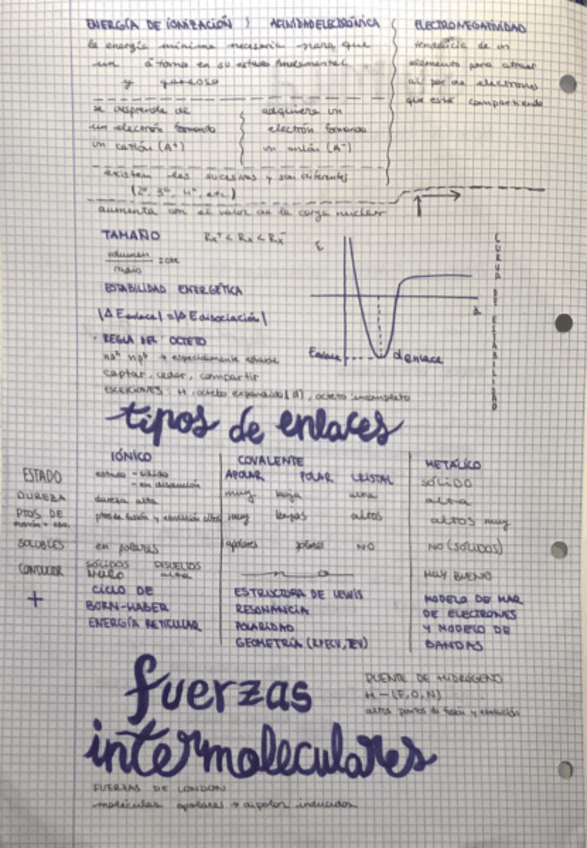 ENERGÍA DE IONIZACIÓN AFINIDAD ELECTRÓNICA
la energía mínima necesaria para que
un átomo en su estado fundamental
y gaseoso
se desprende de
un electrón formando
un catión (A⁺)
adquiera un
electrón formando
un anión (A⁻)
existen las sucesivas y son diferentes
(2ª, 3ª, 4ª, etc)
aumenta con el valor de la carga nuclear
ELECTRONEGATIVIDAD
tendencia de un
elemento para atraer
al par de electrones
que está compartiendo
TAMAÑO Rx⁺ < Rx < Rx⁻
volumen
radio
ESTABILIDAD ENERGÉTICA
|Δ Eenlace| = |Δ Edisociación|
· REGLA DEL OCTETO
ns² np⁶ → especialmente estable
captar, ceder, compartir
EXCEPCIONES: H, octeto expandido (d), octeto incompleto
E
d
Eenlace
d enlace
CURVA DE ESTABILIDAD
tipos de enlaces
IÓNICO COVALENTE METÁLICO
APOLAR POLAR CRISTAL
ESTADO estado - sólido SÓLIDO
- en disolución
DUREZA dureza alta muy baja alta alta
PTOS DE ptos de fusión y ebullición altos muy bajos altos altos muy
fusión + ebu.
SOLUBLES en polares apolares polares NO NO (SÓLIDOS)
CONDUCEN SÓLIDOS DISUELTOS NO MUY BUENO
+
CICLO DE
BORN-HABER
ENERGÍA RETICULAR
ESTRUCTURA DE LEWIS
RESONANCIA
POLARIDAD
GEOMETRÍA (RPECV, TEV)
MODELO DE MAR
DE ELECTRONES
Y MODELO DE
BANDAS
fuerzas
intermoleculares
PUENTE DE HIDRÓGENO
H - (F, O, N)
altos puntos de fusión y ebullición
FUERZAS DE LONDON
moléculas apolares → dipolos inducidos